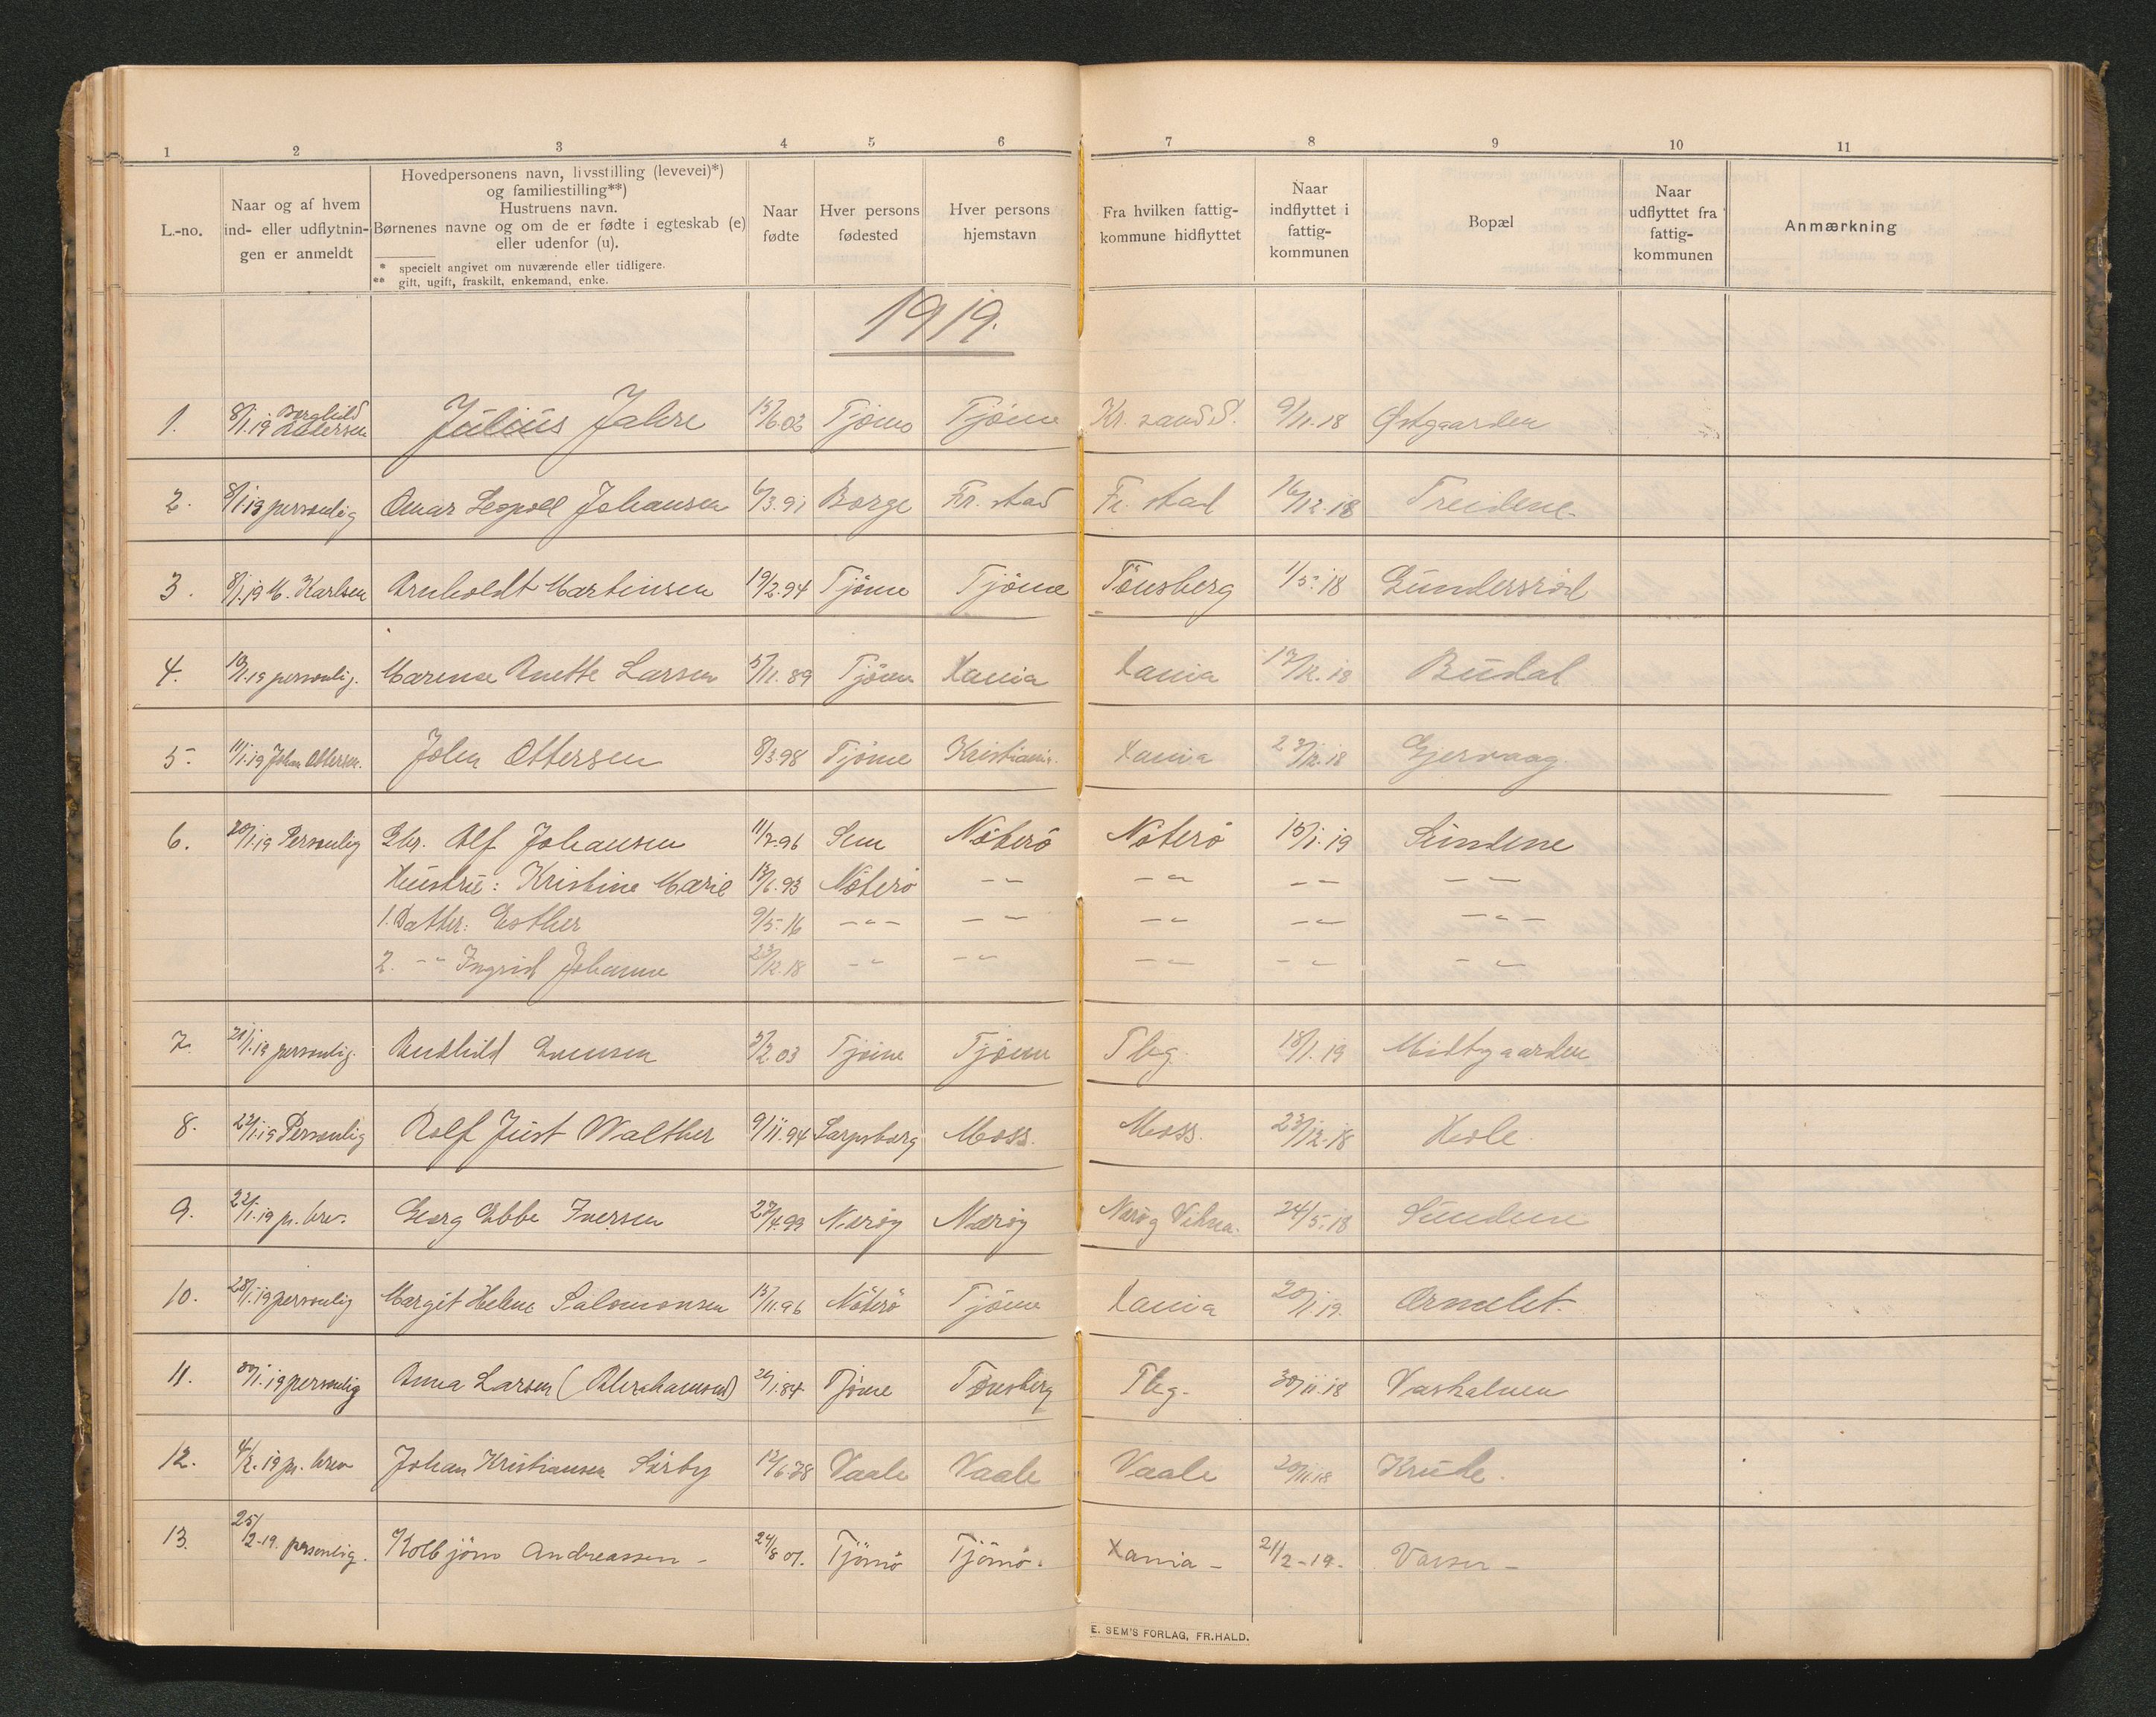 1 2 3 4 5 6 7 8 9 10 11
L.-no.
Naar og af hvem
ind- eller udflytnin-
gen er anmeldt
Hovedpersonens navn, livsstilling (levevei)*)
og familiestilling**)
Hustruens navn.
Børnenes navne og om de er fødte i egteskab (e)
eller udenfor (u).
* specielt angivet om nuværende eller tidligere.
** gift, ugift, fraskilt, enkemand, enke.
Naar
fødte
Hver persons
fødested
Hver persons
hjemstavn
Fra hvilken fattig-
kommune hidflyttet
Naar
indflyttet i
fattig-
kommunen
Bopæl
Naar
udflyttet fra
fattig-
kommunen
Anmærkning
1919.
1. 8/1.19 Borghild Julius Jahre 15/6.03 Tjømø Tjöme Kr. sand S. 9/11.18 Østgaarden
2. 8/1.19 personlig Omar Leopold Johansen 6/3.91 Borge Fr. stad Fr. stad 16/12.18 Treidene
3. 8/1.19 M. Karlsen Arnholdt Martinsen 19/2.94 Tjöme Tjöme Tönsberg 1/5.18 Gundersröd
4. 10/1.19 personlig. Marense Anette Larsen 5/11.89 Tjöme Xania Xania 17/12.18 Budal
5. 11/1.19 John Ottersen. John Ottersen 8/3.98 Tjöme Kristiania. Xania 23/12.18 Gjervaag
6. 20/1.19 Personlig Chr. Alf Johansen 11/2.96 Sem Nöterö Nöterö 15/1.19 Sundene
Hustru: Kristine Marie 13/6.93 Nöterö - " - " - " - "
1. Datter: Esther 9/5.16 - " - - " - " - " - " -
2. - " Ingrid Johanne 23/12.18 - " - " - " - " - "
7. 21/1.19 personlig. Andhild Evensen 3/2.03 Tjöme Tjöme Tbg. 18/1.19 Midtgaarden
8. 22/1.19 Personlig Rolf Just Walther 9/11.94 Sarpsborg Moss. Moss. 23/12.18 Hole.
9. 22/1.19 pr. brev. Georg Ebbe Iversen 27/4.99 Næröy Næröy Næröy Vikna. 24/5.18 Sundene
10. 28/1.19 personlig Margit Helene Salomonsen 15/11.96 Nöterö Tjöme Xania 20/1.19. Ormelet.
11. 30/1.19 personlig Anna Larsen (Abrahamsen) 20/1.84 Tjöme Tønsberg Tbg. 30/11.18 Vashalmen
12. 4/2.19 pr. brev Johan Kristiansen Sörby 12/6.78 Vaale Vaale Vaale 20/11.18 Kruke.
13. 25/2-19. personlig. Kolbjörn Andreassen - 24/8 01. Tjömö Tjömö. Xania - 21/2-19- Vasser -
E. SEM'S FORLAG, FR.HALD.